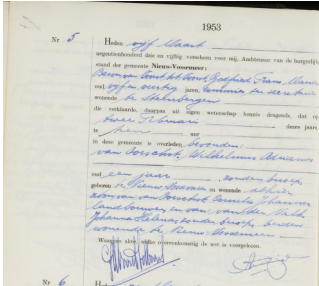 1953
Nr 5
Heden vijf Maart
negentienhonderd drie en vijftig verscheen voor mij, Ambtenaar van de burgerlijke
stand der gemeente Nieuw-Vossemeer:
Frans
oud vijf en veertig jaren,
wonende te Steenbergen
die verklaarde, daarvan uit eigen wetenschap kennis dragende, dat op
twee Februari dezes jaars
te uur
in deze gemeente is overleden, bevonden:
van Wilhelmus Adrianus
oud een jaar, zonder beroep,
geboren te Nieuw-Vossemeer en wonende alhier
zoon van van Cornelis Johannes
landbouwer, en van: van der
Johanna Helena, zonder beroep, beiden
wonende te Nieuw-Vossemeer
Waarvan akte, welke overeenkomstig de wet is voorgelezen.
Nr 6